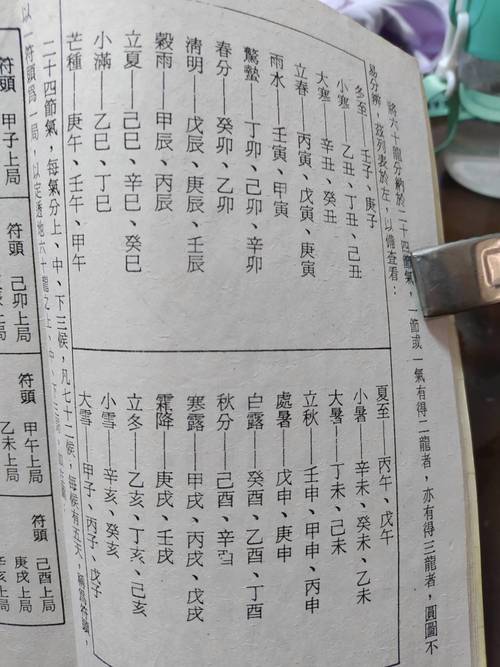 將六十龍分納於二十四節氣，一節或一氣有得二龍者，亦有得三龍者，圓圖不
易分辨，茲列表於左，以備查看：
冬至——壬子、庚子
小寒——乙丑、丁丑、己丑
大寒——辛丑、癸丑
立春——丙寅、戊寅、庚寅
雨水——壬寅、甲寅
驚蟄——丁卯、己卯、辛卯
春分——癸卯、乙卯
清明——戊辰、庚辰、壬辰
穀雨——甲辰、丙辰
立夏——己巳、辛巳、癸巳
小滿——乙巳、丁巳
芒種——庚午、壬午、甲午
夏至——丙午、戊午
小暑——辛未、癸未、乙未
大暑——丁未、己未
立秋——壬申、甲申、丙申
處暑——戊申、庚申
白露——癸酉、乙酉、丁酉
秋分——己酉、辛酉
寒露——甲戌、丙戌、戊戌
霜降——庚戌、壬戌
立冬——乙亥、丁亥、己亥
小雪——辛亥、癸亥
大雪——甲子、丙子、戊子
二十四節氣，每氣分上、中、下三候，凡七十二候，每候有五天，稱為符頭，
以一符頭為一局，以定透地六十龍之上、中、下
符頭 甲子上局
符頭 己卯上局
符頭 甲午上局
乙未上局
符頭 己酉上局
庚戌上局
辛亥上局